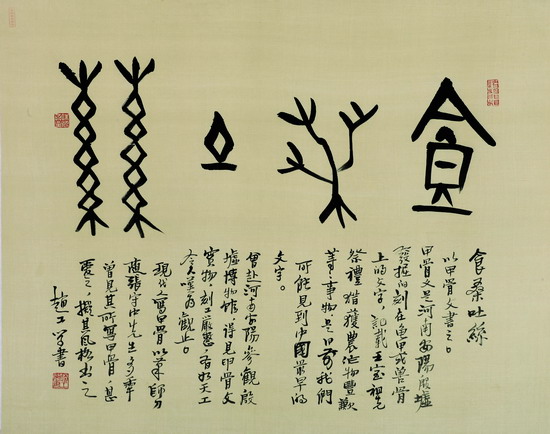 食桑吐絲
食桑吐絲
以甲骨文書之。
甲骨文是河南安陽殷墟
發掘的刻在龜甲或獸骨
上的文字,記載王室祖先
祭禮獵獲農作物豐歉
等事物是目前我們
可能見到中國最早的
文字。
曾赴河南安陽參觀殷
墟博物館,得見甲骨文
實物,刻工嚴謹,有如天工
令人嘆為觀止。
現代人寫甲骨以業師
張守中先生
曾見其所寫甲骨,甚
愛之,擬其風格書之
趙工學書